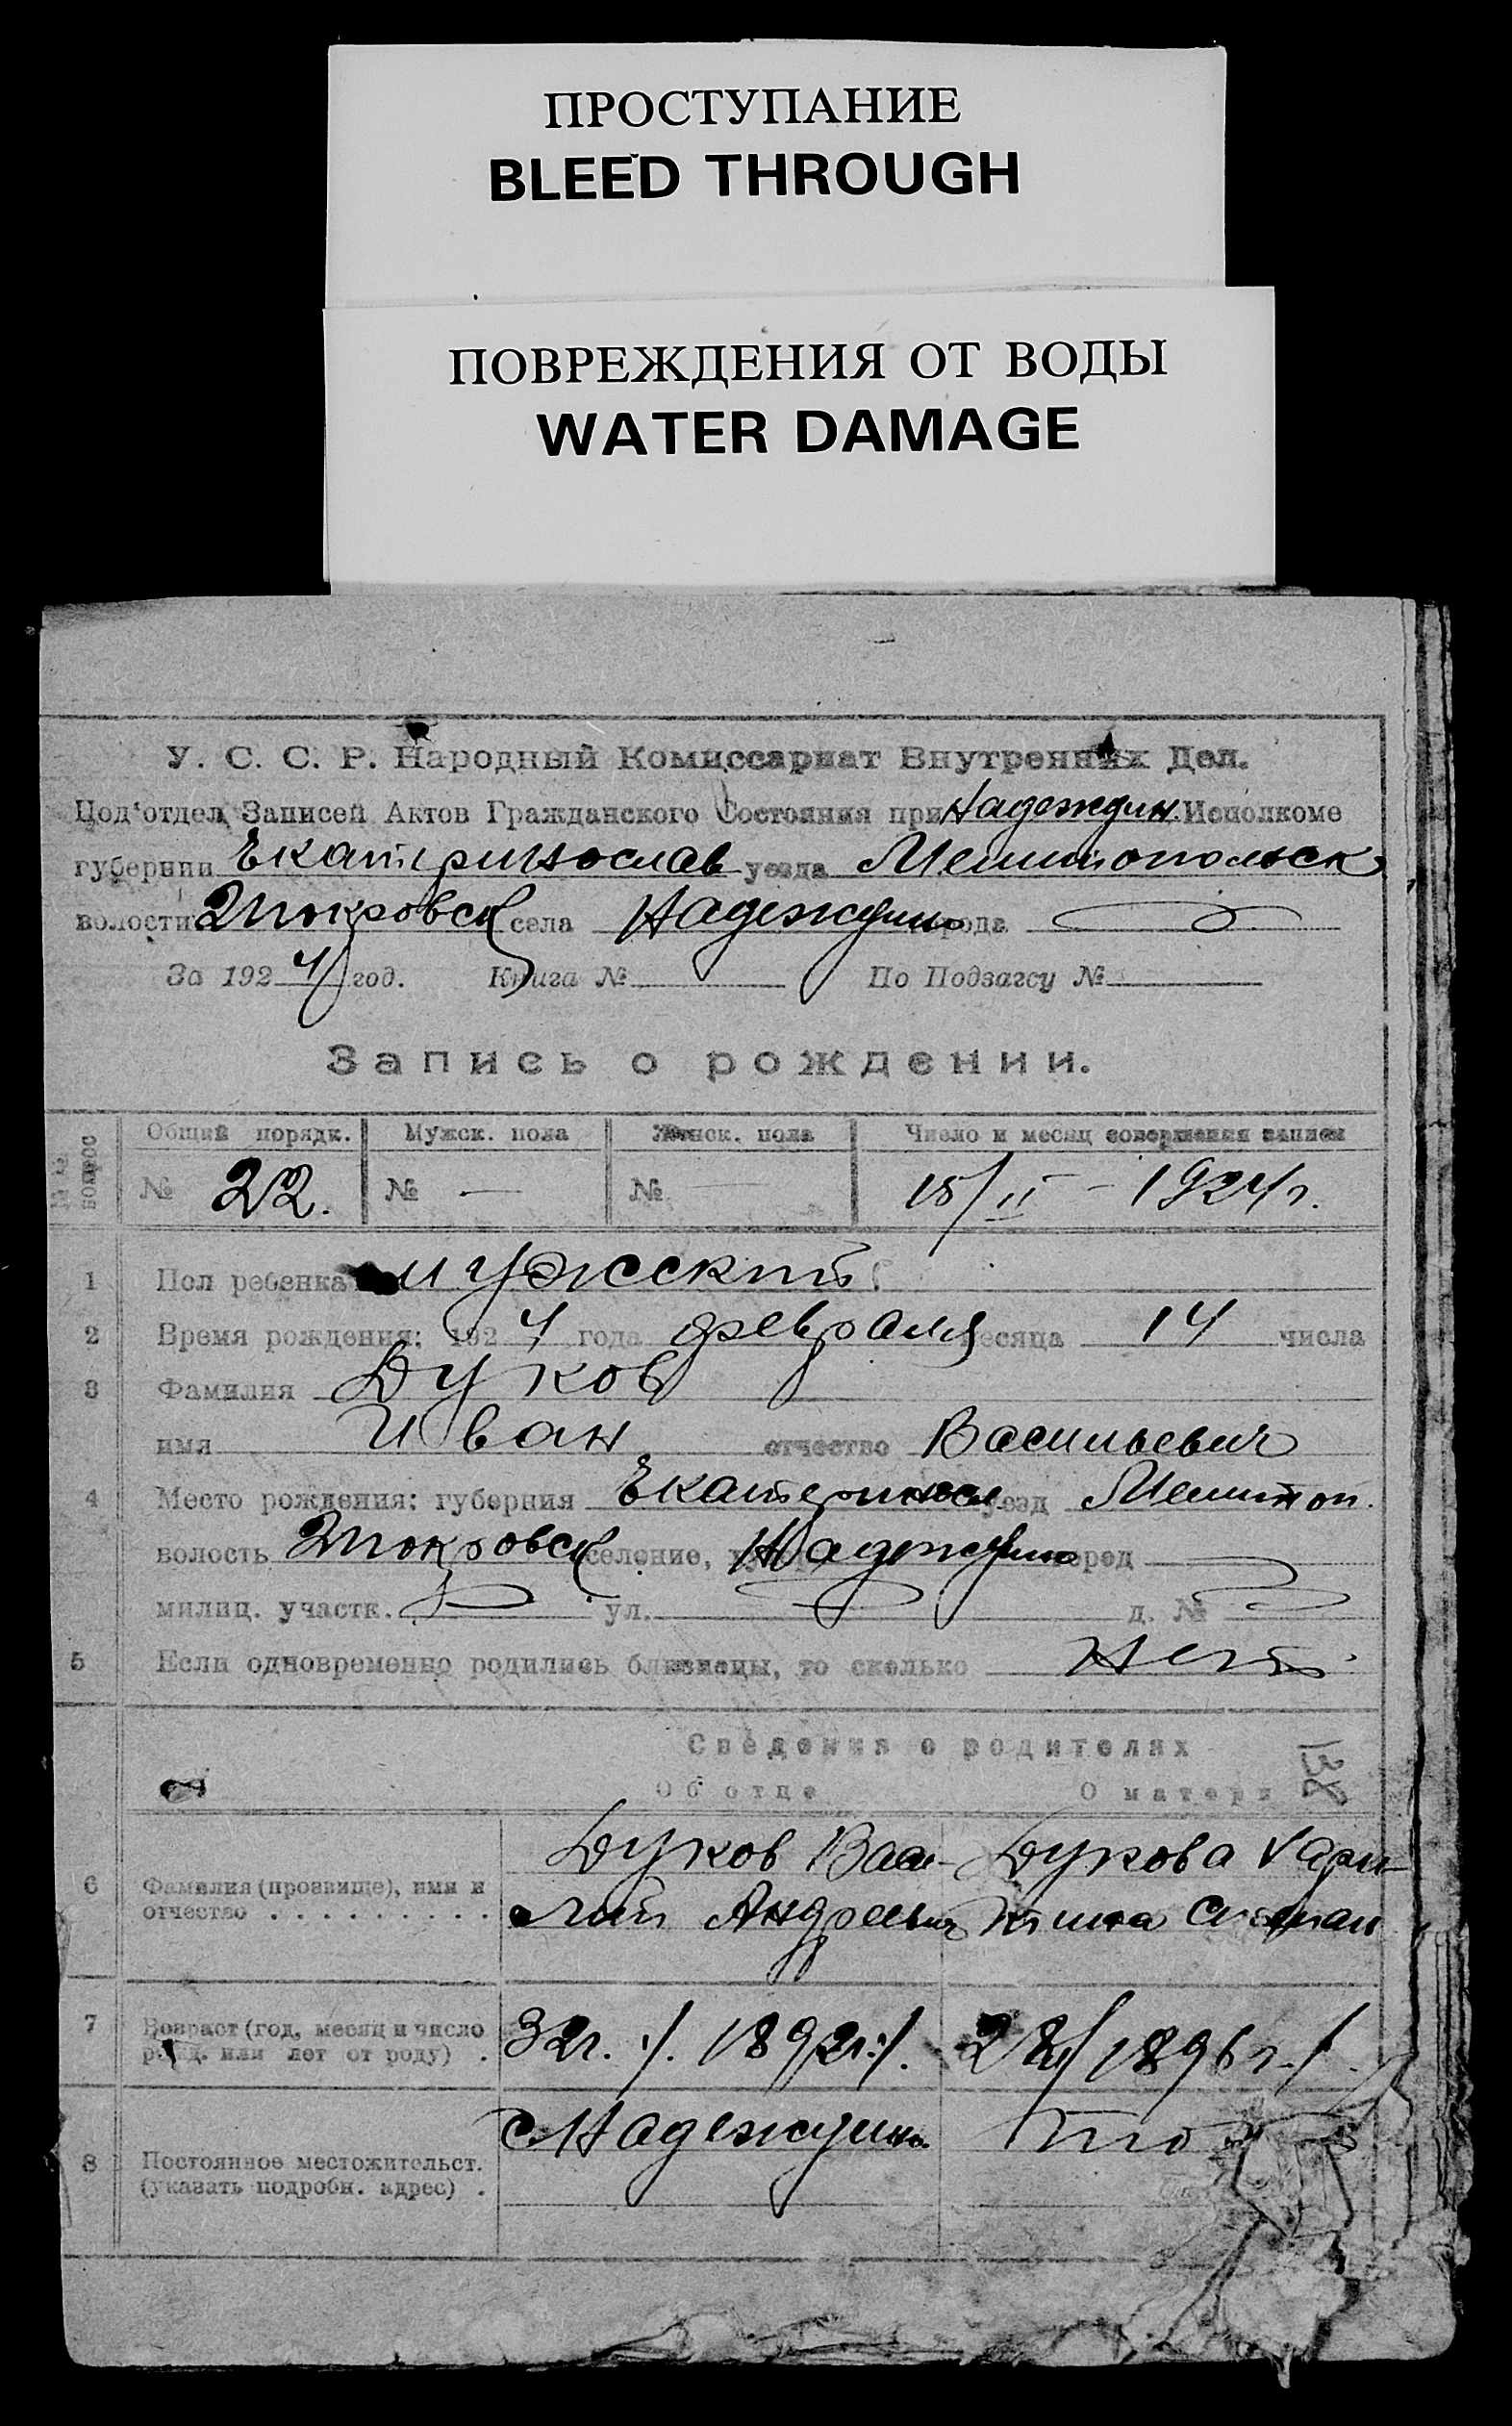 ПРОСТУПАНИЕ
BLEED THROUGH
ПОВРЕЖДЕНИЯ ОТ ВОДЫ
WATER DAMAGE
У. С. С. Р. Народный Комиссариат Внутренних Дел.
Под'отдел Записей Актов Гражданского Состояния при Надеждин. Исполкоме
губернии Екатеринослав уезда Мелитопольск
волости Покровск села Надеждино города
За 1924 год. Книга № По Подзагсу №
Запись о рождении.
Общий порядк. Мужск. пола Женск. пола Число и месяц совершения записи
№ 22. № — № — 15/II – 1924 г.
1 Пол ребенка мужской
2 Время рождения: 1924 года февраля месяца 14 числа
3 Фамилия Дуков
имя Иван отчество Васильевич
4 Место рождения: губерния Екатеринос. уезд Мелитоп.
волость Покровск селение, Надеждино город
милиц. участк. ул. д. №
5 Если одновременно родились близнецы, то сколько нет
Сведения о родителях
138
Об отце О матери
Дуков Васи- Дукова
6 Фамилия (прозвище), имя и
отчество . . . . . . . . . лий Андреевич Степан
7 Возраст (год, месяц и число
рожд. или лет от роду) . 32 г. /. 1892 г. /. 28 л / 1896 г. /.
8 Постоянное местожительст.
(указать подробн. адрес) . с. Надеждино